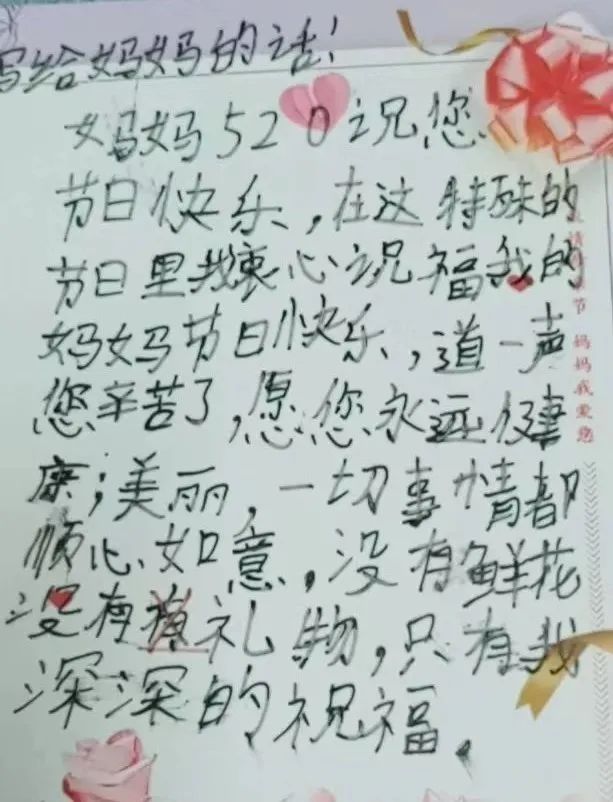 写给妈妈的话!
妈妈520祝您
节日快乐,在这特殊的
节日里我衷心祝福我的
妈妈节日快乐,道一声
您辛苦了,愿您永远健
康;美丽,一切事情都
顺心如意,没有鲜花
没有礼物,只有我
深深的祝福.
妈妈我爱您